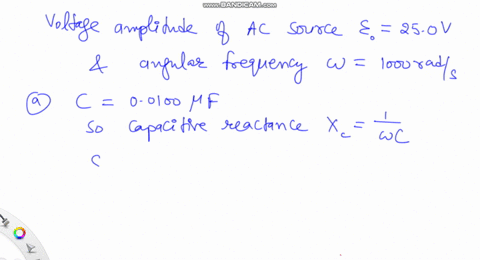 WWW.BANDICAM.COM
Voltage amplitude of AC source ℰ₀ = 25.0 V
& angular frequency ω = 1000 rad/s
ⓐ C = 0.0100 μF
so capacitive reactance X_c = 1/ωC